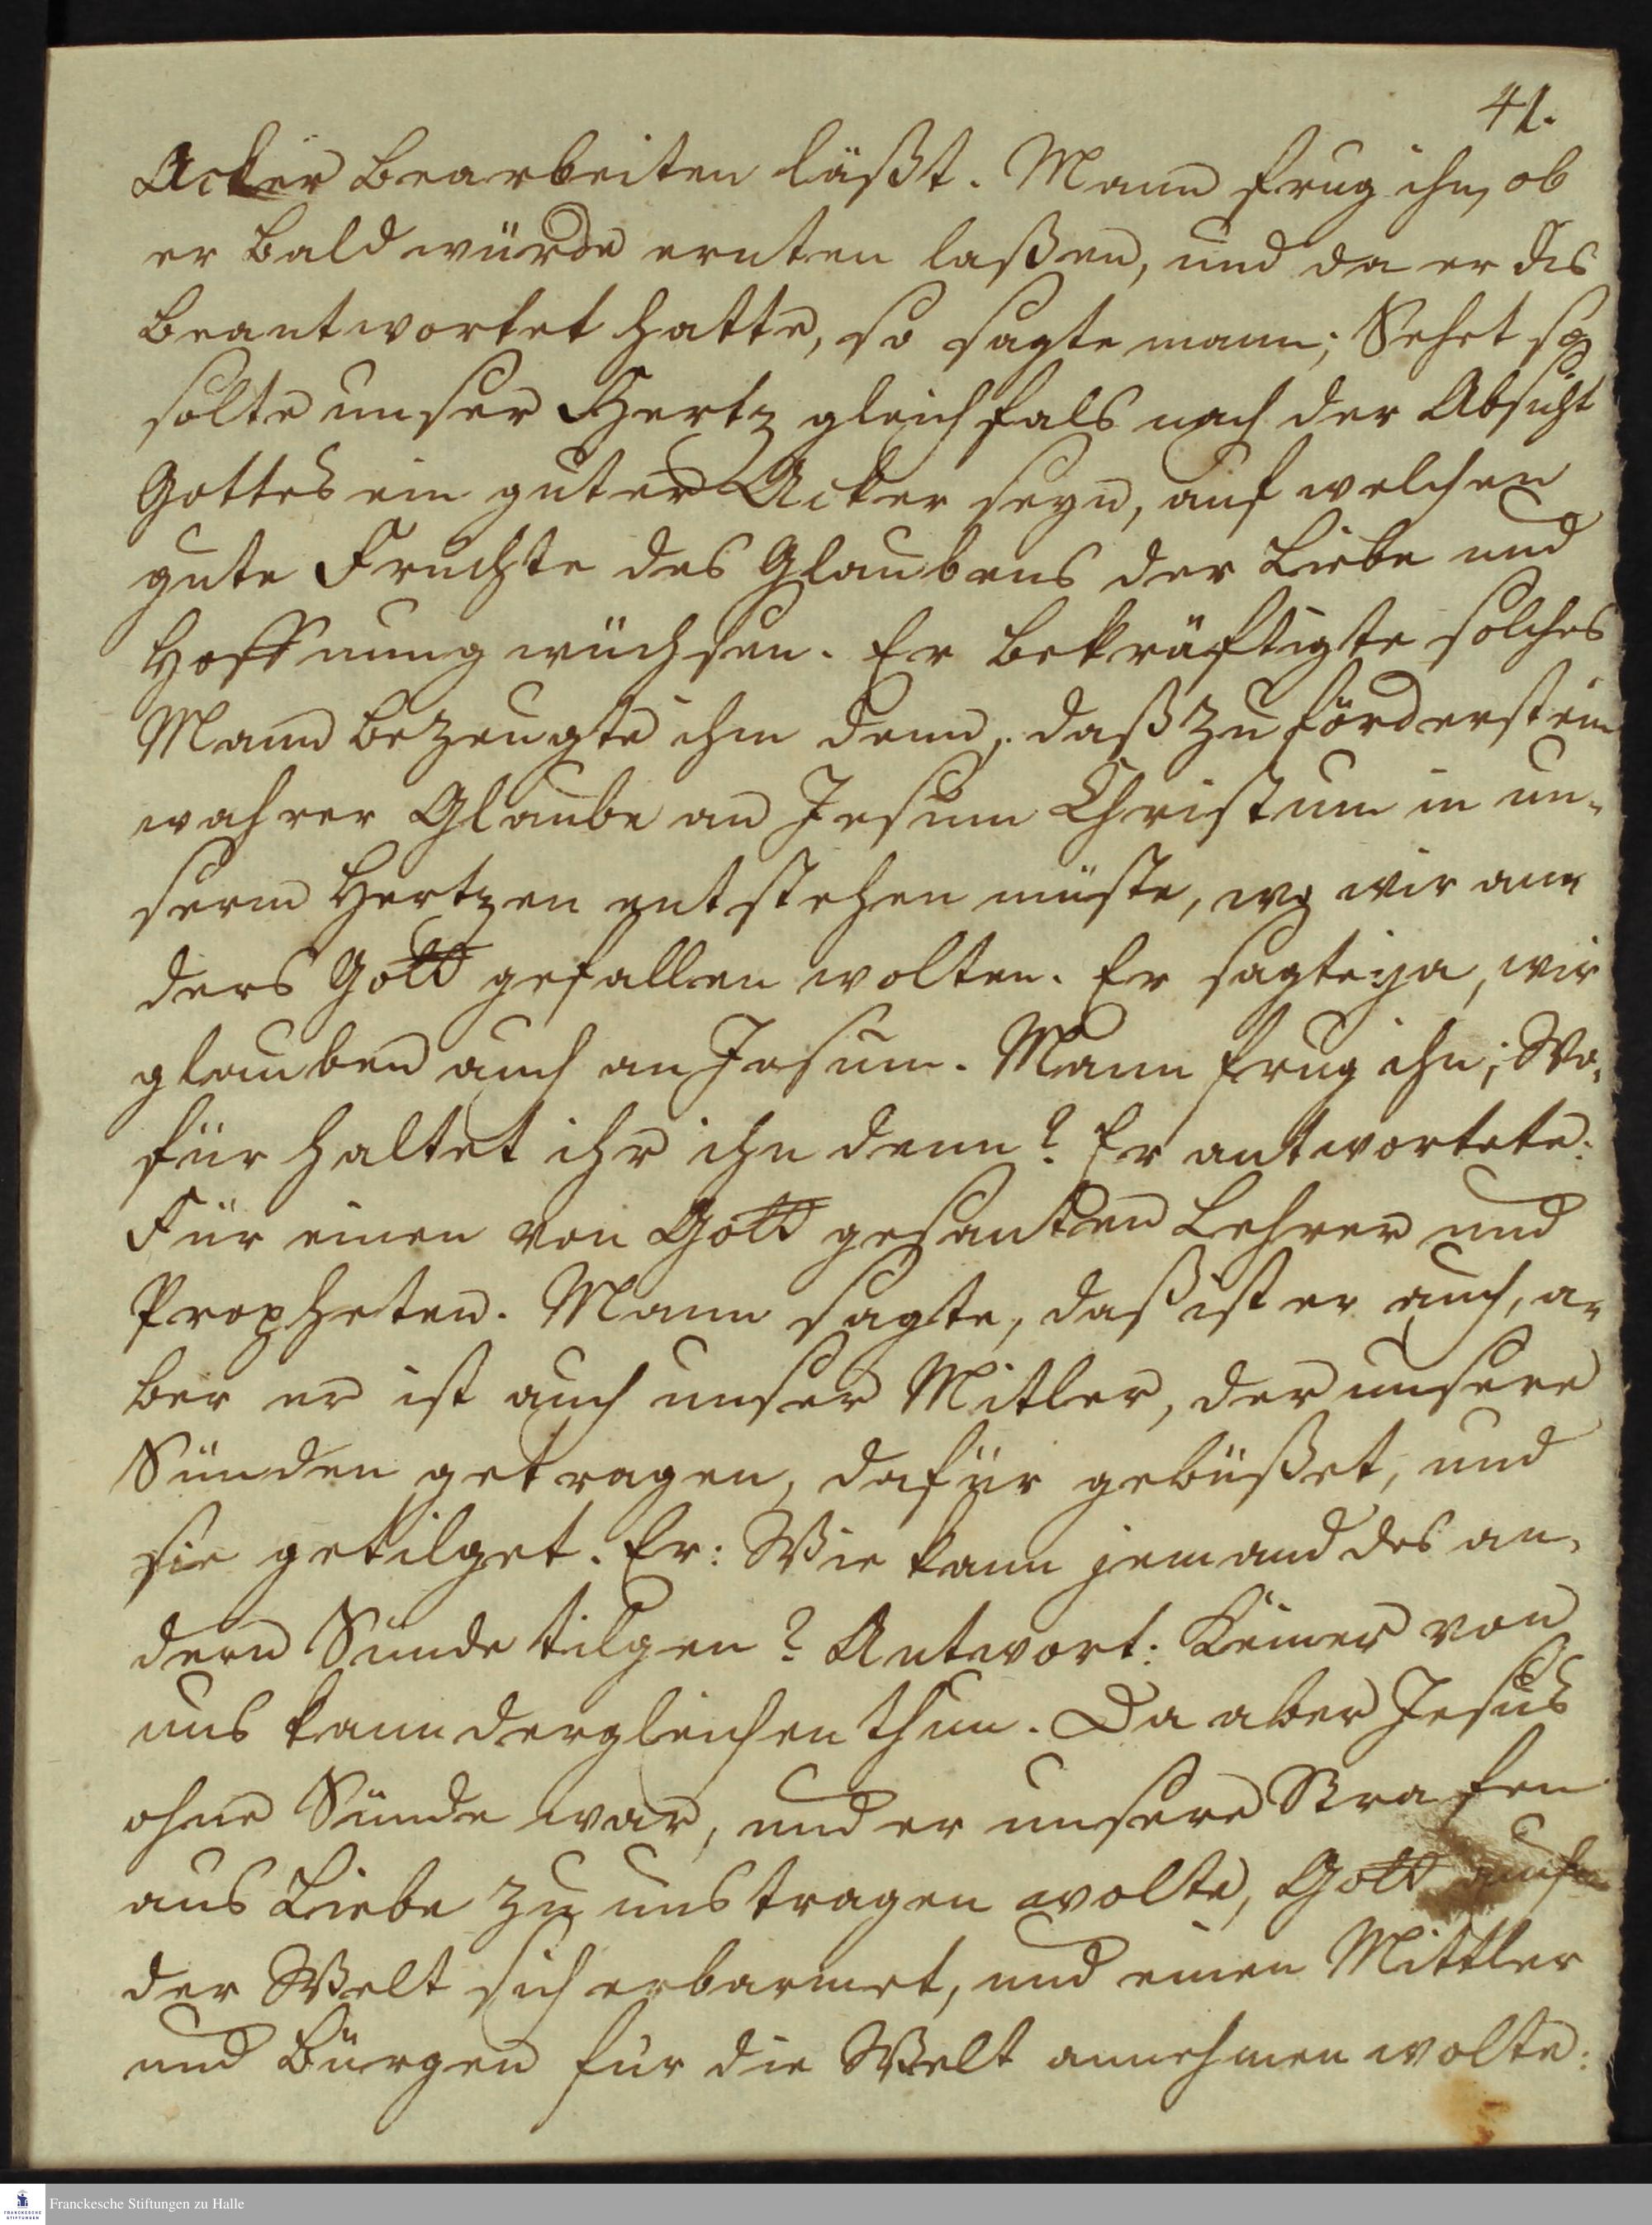 41.
Acker bearbeiten läßt. Mann frug ihn, ob
er bald würde ernten laßen, und da er dis
beantwortet hatte, so sagte mann; Sehet so
solte unser Hertz gleichfals nach der Absicht
Gottes ein guter Acker seyn, auf welchen
gute Fruchte des Glaubens der Liebe und
Hoffnung wüchsen. Er bekräftigte solches
Mann bezeugte ihm denn, daß zuförderst ein
wahrer Glaube an Jesum Christum in un-
serm Hertzen entstehen müste, wo wir an-
ders Gott gefallen wolten. Er sagte: ja, wir
glauben auch an Jesum. Mann frug ihn; Wo-
für haltet ihr ihn denn? Er antwortete:
Für einen von Gott gesanten Lehrer und
Propheten. Mann sagte, daß ist er auch, a-
ber er ist auch unser Mitler, der unsere
Sünden getragen, dafür gebüßet, und
sie getilget. Er: Wie kann jemand des an-
dern Sünde tilgen? Antwort: Keiner von
uns kann dergleichen thun. Da aber Jesus
ohne Sünde war, und er unsere Strafen
aus Liebe zu uns tragen wolte, Gott auch
der Welt sich erbarmet, und einen Mittler
und Bürgen für die Welt annehmen wolte:
Franckesche Stiftungen zu Halle